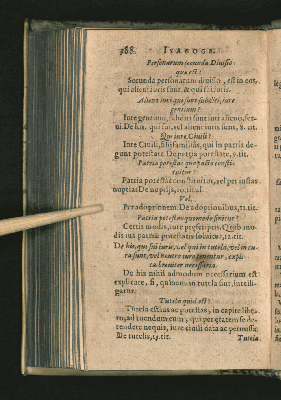 388. ISAGOGE
Personarum secunda Divisio
quæ est?
Secunda personarum divisio, est in eos,
qui alieni iuris sunt, & qui sui iuris.
Alieno iuri qui sunt subditi, iure
gentium?
Iure gentium, alieni sunt iuris
ut. De his, qui sui, vel alieni iuris sunt, 8. tit.
Qui iure Civili?
Iure Civili, filii familias, qui in patria
gunt potestate. De patria potestate, 9. tit.
Patria potestas quo pacto
tuitur?
Patria potestas constituitur, vel per iustas
nuptias. De nuptijs, 10. titul.
Vel,
Per adoptionem. De adoptionibus, 11. tit.
Patria potestas quomodo finitur?
Certis modis, iure præscriptis. Quib. mo-
dis ius patriæ potestatis solvitur, 12. tit.
De his, qui sui iuris, vel qui in tutela, vel in cu-
ra sunt, vel neutro iure tenentur, expli-
ca breviter necessaria.
De his nihil admodum necessarium est
explicare, si, quinam in tutela sint, intelli-
gatur.
Tutela quid est?
Tutela est ius ac potestas, in capite libe-
ro, ad tuendum eum, qui per ætatem se de-
fendere nequit, iure civili data ac permissa.
De tutelis, 13. tit.
Tutela